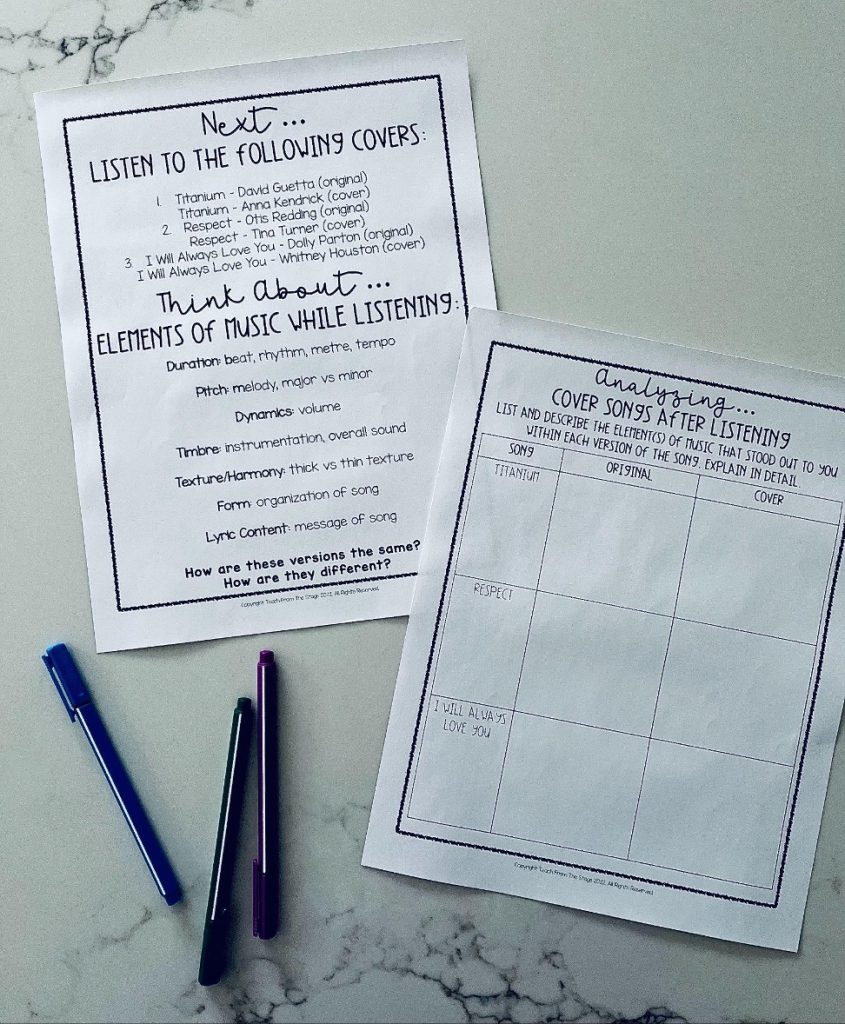 Next ...
LISTEN TO THE FOLLOWING COVERS:
1. Titanium - David Guetta (original)
Titanium - Anna Kendrick (cover)
2. Respect - Otis Redding (original)
Respect - Tina Turner (cover)
3. I Will Always Love You - Dolly Parton (original)
I Will Always Love You - Whitney Houston (cover)
Think About ...
ELEMENTS OF MUSIC WHILE LISTENING:
Duration: beat, rhythm, metre, tempo
Pitch: melody, major vs minor
Dynamics: volume
Timbre: instrumentation, overall sound
Texture/Harmony: thick vs thin texture
Form: organization of song
Lyric Content: message of song
How are these versions the same?
How are they different?
Copyright Teach From The Stage 2022. All Rights Reserved.
Analyzing ...
COVER SONGS AFTER LISTENING
LIST AND DESCRIBE THE ELEMENT(S) OF MUSIC THAT STOOD OUT TO YOU
WITHIN EACH VERSION OF THE SONG. EXPLAIN IN DETAIL.
SONG ORIGINAL COVER
TITANIUM
RESPECT
I WILL ALWAYS
LOVE YOU
Copyright Teach From The Stage 2022. All Rights Reserved.